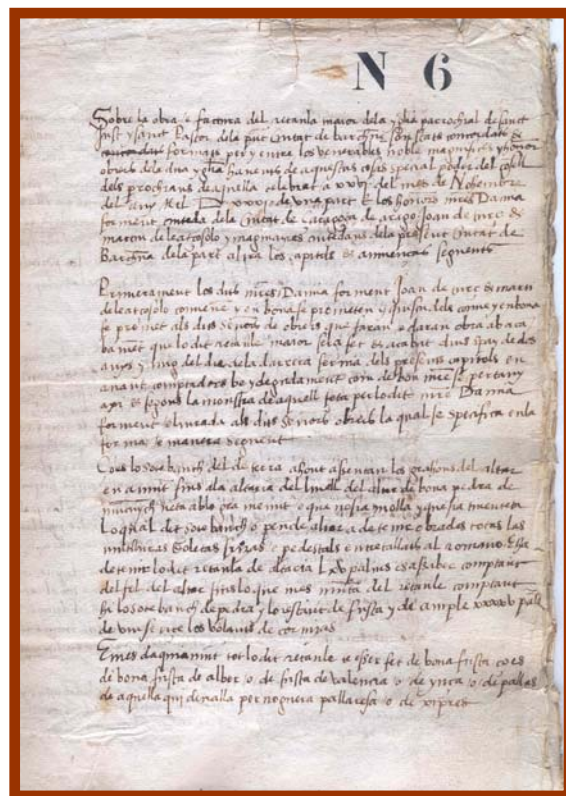 N 6
Sobre la obra e factura del retaula maior dela yglia parrochial de sanct
Just y sanct Pastor dela pnt Ciutat de barchna son stats concordats e
formats per y entre los venerables noble magnifics y honor
obrers dela dita yglia havents de aquestas cosas special poder del consell
dels prochians de aquella celebrat a del mes de Nohembre
del any Mil D xxxj de una part E los honors mres Damia
forment Ciutada dela Ciutat de Caragoça de arago Joan de
Martin y ciutedans dela present Ciutat de
Barchna dela part altra los capitols et seguents
Primerament los dits mres Damia forment Joan de e marti
y en bona fe prometen y
fe promet als dits Senors de obrers que faran o faran obra abaca
bament que lo dit retaule maior sera fet e acabat dins spay de dos
anys y mig del dia dela darrera ferma dels presents capitols en
avant comptadors be y degudament com de bon mre se pertany
axi et segons la monstra de aquell feta per lo dit mre Damia
forment e liurada als dits senors obrers la qual se specifica en la
forma e manera seguent
Ço es lo sotabanch del de terra ahont assentan los grahons del altar
en amunt fins ala altaria del del altar de bona pedra de
neta ab lo gra menut e que no sia molla y que sia
Loqual dit sotabanch o de altar a de tenir obradas totas las
e pedestals entretallats al romano E ha
de tenir lo dit retaula de altaria L xv palms es assaber comptant
del del altar fins lo que mes munta del retaule comptant
hi lo sotabanch de pedra y lo restant de fusta y de ample xxxxv palms
de viu se los volants de cornisas
E mes daqui amunt tot lo dit retaule te esser fet de bona fusta ço es
de bona fusta de alber o de fusta de valencia o de o de pallas
de aquella qui devalla per noguera pallaresa o de xipres